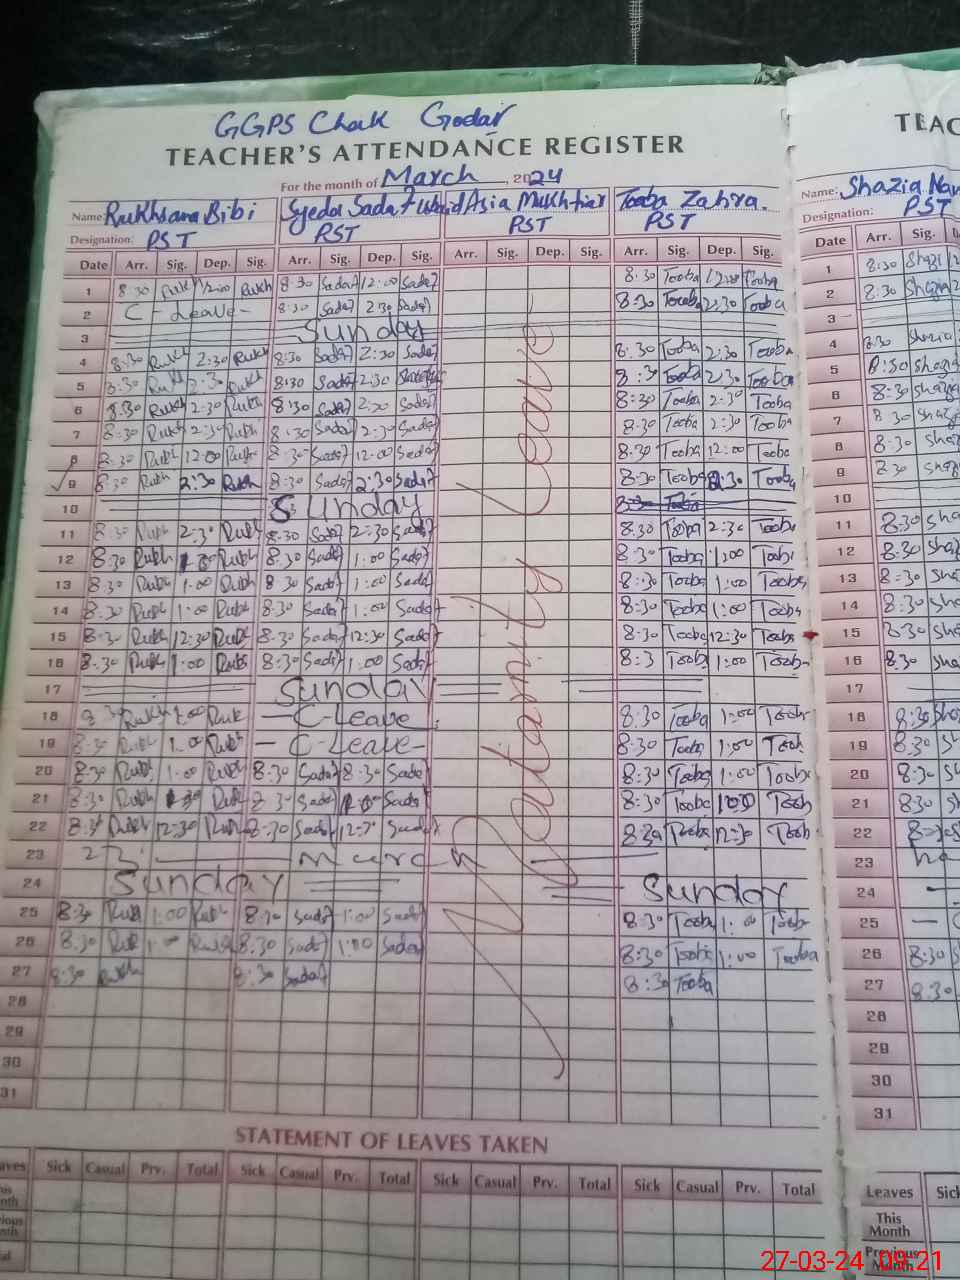 GGPS Chak Godar
TEACHER'S ATTENDANCE REGISTER
For the month of March, 2024
Name: Rukhsana Bibi Syeda Sadaf Asia Mukhtiar Tooba Zahra.
Designation: PST PST PST PST
Date Arr. Sig. Dep. Sig. Arr. Sig. Dep. Sig. Arr. Sig. Dep. Sig. Arr. Sig. Dep. Sig.
1 8:30 Rukh 12:00 Rukh 8:30 Sadaf 12:00 Sadaf 8:30 Tooba 12:00 Tooba
2 C - Leave - 8:30 Sadaf 2:30 Sadaf 8:30 Tooba 2:30 Tooba
3 Sunday
4 8:30 Rukh 2:30 Rukh 8:30 Sadaf 2:30 Sadaf 8:30 Tooba 2:30 Tooba
5 8:30 Rukh 2:30 Rukh 8:30 Sadaf 2:30 8:30 Tooba 2:30 Tooba
6 8:30 Rukh 2:30 Rukh 8:30 Sadaf 2:30 Sadaf 8:30 Tooba 2:30 Tooba
7 8:30 Rukh 2:30 Rukh 8:30 Sadaf 2:30 Sadaf 8:30 Tooba 2:30 Tooba
8 8:30 Rukh 12:00 Rukh 8:30 Sadaf 12:00 Sadaf 8:30 Tooba 12:00 Tooba
9 8:30 Rukh 2:30 Rukh 8:30 Sadaf 2:30 Sadaf 8:30 Tooba 2:30 Tooba
10 Sunday
11 8:30 Rukh 2:30 Rukh 8:30 Sadaf 2:30 Sadaf 8:30 Tooba 2:30 Tooba
12 8:30 Rukh 1:00 Rukh 8:30 Sadaf 1:00 Sadaf 8:30 Tooba 1:00 Tooba
13 8:30 Rukh 1:00 Rukh 8:30 Sadaf 1:00 Sadaf 8:30 Tooba 1:00 Tooba
14 8:30 Rukh 1:00 Rukh 8:30 Sadaf 1:00 Sadaf 8:30 Tooba 1:00 Tooba
15 8:30 Rukh 12:30 Rukh 8:30 Sadaf 12:30 Sadaf 8:30 Tooba 12:30 Tooba
16 8:30 Rukh 1:00 Rukh 8:30 Sadaf 1:00 Sadaf 8:3 Tooba 1:00 Tooba
17 Sunday
18 8:30 Rukh 1:00 Rukh - C-Leave 8:30 Tooba 1:00 Tooba
19 8:30 Rukh 1:00 Rukh - C-Leave - 8:30 Tooba 1:00 Tooba
20 8:30 Rukh 1:00 Rukh 8:30 Sadaf 8:30 Sadaf 8:30 Tooba 1:00 Tooba
21 8:30 Rukh Rukh 8:30 Sadaf 1:00 Sadaf 8:30 Tooba 1:00 Tooba
22 8:30 Rukh 12:30 Rukh 8:30 Sadaf 12:30 Sadaf 8:30 Tooba 12:30 Tooba
23 23 March
24 Sunday Sunday
25 8:30 Rukh 1:00 Rukh 8:30 Sadaf 1:00 Sadaf 8:30 Tooba 1:00 Tooba
26 8:30 Rukh 1:00 Rukh 8:30 Sadaf 1:00 Sadaf 8:30 Tooba 1:00 Tooba
27 8:30 Rukh 8:30 Sadaf 8:30 Tooba
28
29
30
31
Metarnity Leave
STATEMENT OF LEAVES TAKEN
Sick Casual Prv. Total Sick Casual Prv. Total Sick Casual Prv. Total Sick Casual Prv. Total
TEAC
Name: Shazia Na
Designation: PST
Date Arr. Sig.
1 8:30 Shazi
2 8:30 Shazia
3
4 8:30 Shazia
5 8:30 Shazia
6 8:30 Shazia
7 8:30 Shaz
8 8:30 Shaz
9 8:30 Shaz
10
11 8:30 Sha
12 8:30 Shaz
13 8:30 Sha
14 8:30 Sha
15 8:30 Sha
16 8:30 Sha
17
18 8:30 Sho
19 8:30 Sh
20 8:30 Sh
21 8:30 Sh
22
23
24
25 - C
26 8:30 S
27 8:30
28
29
30
31
Leaves Sick
This Month
Previous Month
27-03-24 09:21